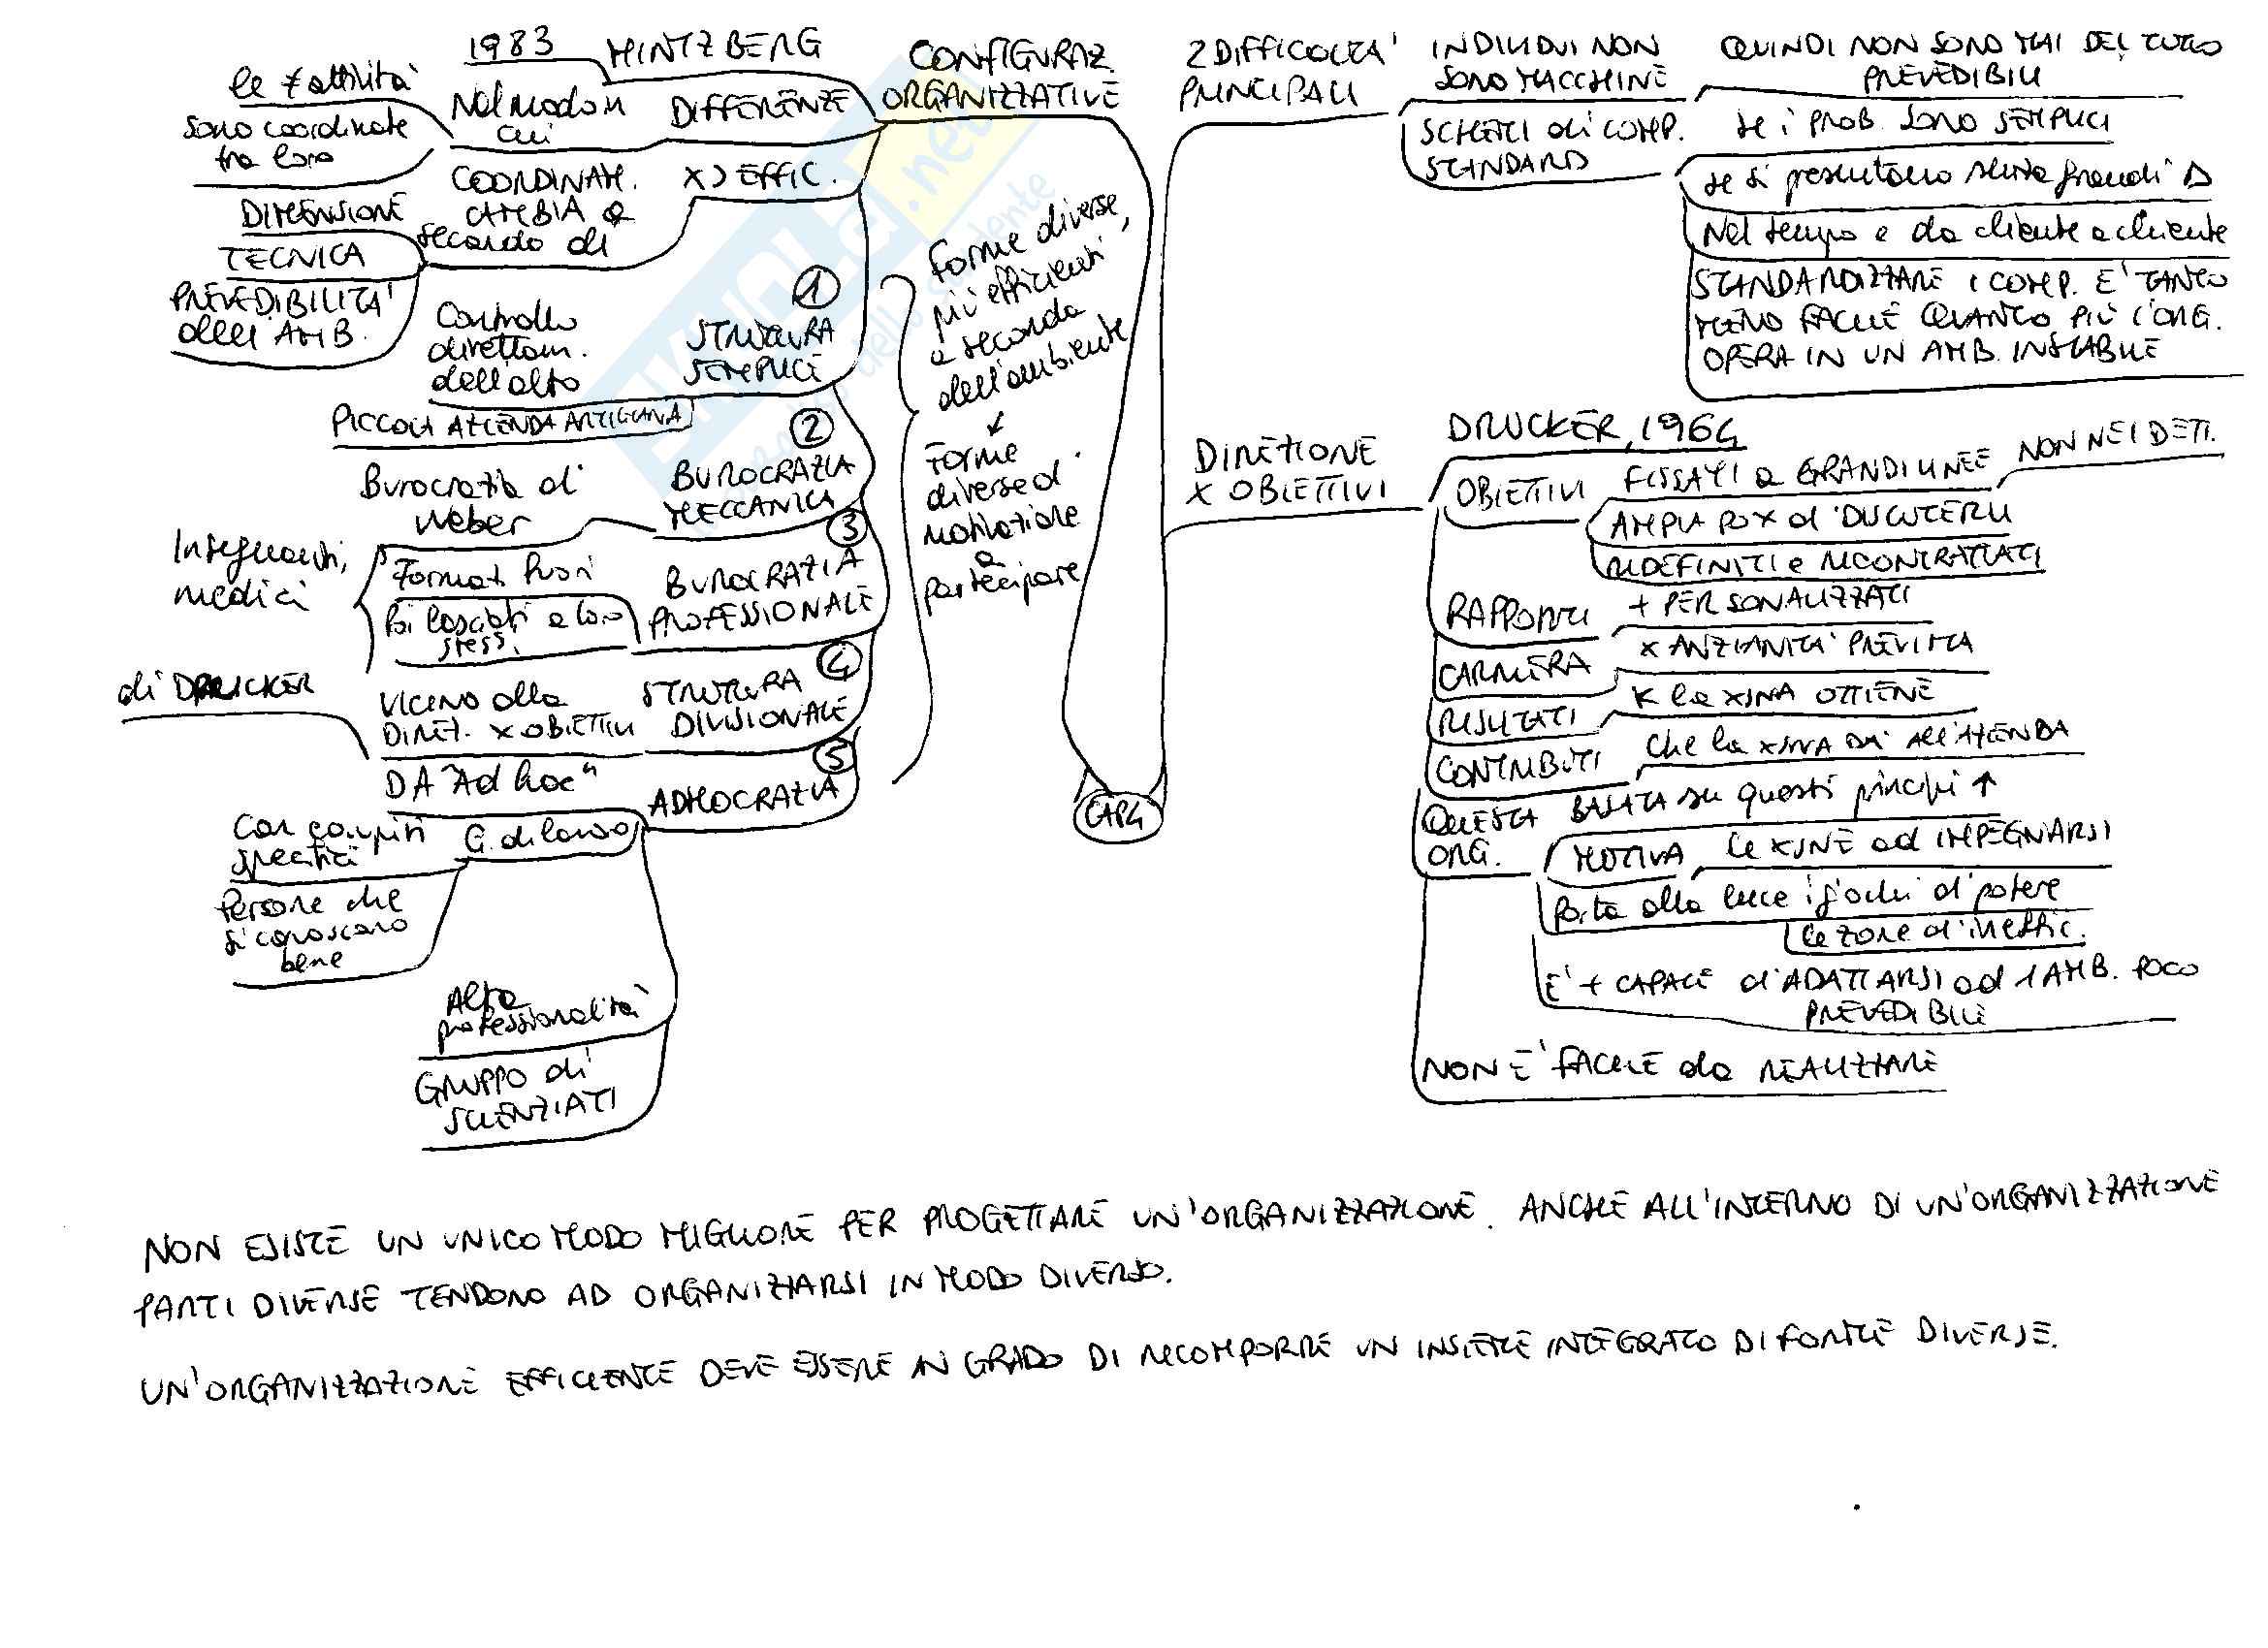 1983 MINTZBERG
CONFIGURAZ.
ORGANIZZATIVE
DIFFERENZE
Nel modo in
cui
le ≠ attività
sono coordinate
tra loro
X > EFFIC.
COORDINAM.
CAMBIA a
secondo di
DIMENSIONE
TECNICA
PREVEDIBILITA'
dell'AMB.
1
STRUTTURA
SEMPLICE
Controllo
direttam.
dall'alto
PICCOLA AZIENDA ARTIGIANA
2
BUROCRAZIA
MECCANICA
Burocrazia di
Weber
3
BUROCRAZIA
PROFESSIONALE
Formati fuori
Poi lasciati a loro
stess.
Insegnanti,
medici
4
STRUTTURA
DIVISIONALE
VICINO alla
DIREZ. X OBIETTIVI
di DRUCKER
5
ADHOCRAZIA
DA "Ad hoc"
G. di lavoro
Con compiti
specifici
Persone che
si conoscano
bene
Alta
professionalità
GRUPPO di
SCIENZIATI
Forme diverse,
più efficienti
a seconda
dell'ambiente
↙
Forme
diverse di
motivazione
a
partecipare
CAP4
2 DIFFICOLTA'
PRINCIPALI
INDIVIDUI NON
SONO MACCHINE
QUINDI NON SONO MAI DEL TUTTO
PREVEDIBILI
SCHEMI di COMP.
STANDARD
se i PROB. SONO SEMPLICI
se si presentano senza grandi Δ
Nel tempo e da cliente a cliente
STANDARDIZZARE i COMP. E' TANTO
MENO FACILE QUANTO PIÙ L'ORG.
OPERA IN UN AMB. INSTABILE
DIREZIONE
X OBIETTIVI
DRUCKER, 1964
OBIETTIVI
FISSATI a GRANDI LINEE
NON NEI DETT.
AMPIA POX di DISCUTERLI
RIDEFINITI e RICONTRATTATI
RAPPORTI
+ PERSONALIZZATI
CARRIERA
X ANZIANITA' PREVISTA
RISULTATI
K la XSNA OTTIENE
CONTRIBUTI
Che la XSNA DA' All'AZIENDA
QUESTA
ORG.
BASATA su questi principi ↑
MOTIVA
le XSNE ad IMPEGNARSI
Porta alla luce i giochi di potere
le zone d'ineffic.
E' + CAPACE di ADATTARSI ad 1 AMB. POCO
PREVEDIBILE
NON E' FACILE da REALIZZARE
NON ESISTE UN UNICO MODO MIGLIORE PER PROGETTARE UN'ORGANIZZAZIONE. ANCHE ALL'INTERNO DI UN'ORGANIZZAZIONE
PARTI DIVERSE TENDONO AD ORGANIZZARSI IN MODO DIVERSO.
UN'ORGANIZZAZIONE EFFICIENTE DEVE ESSERE IN GRADO DI RICOMPORRE UN INSIEME INTEGRATO DI FORME DIVERSE.